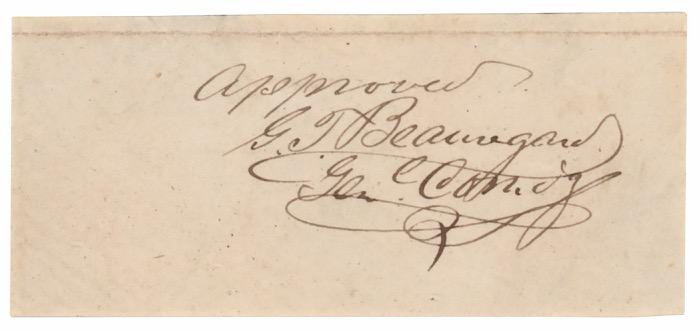 Approved
G. T. Beauregard.
Genl. Comdg